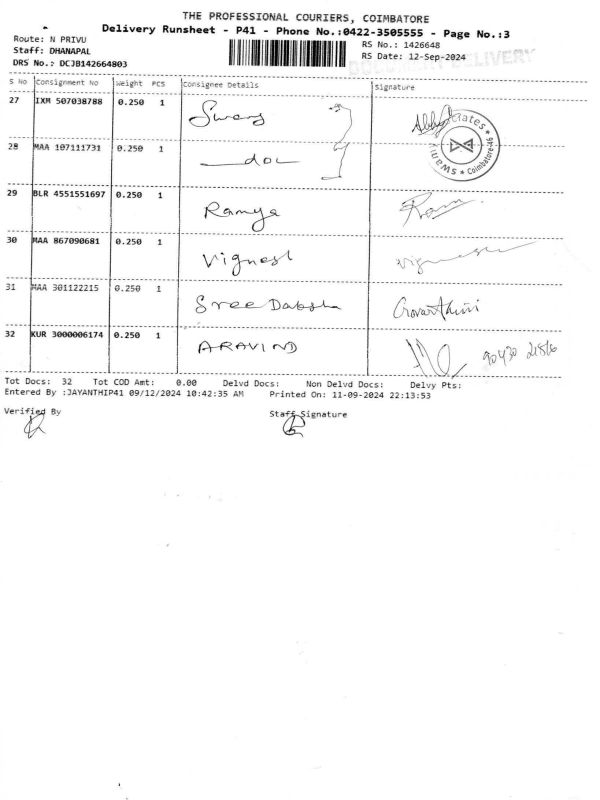 THE PROFESSIONAL COURIERS, COIMBATORE
Delivery Runsheet - P41 - Phone No.:0422-3505555 - Page No.:3
Route: N PRIVU
RS No.: 1426648
Staff: DHANAPAL
RS Date: 12-Sep-2024
DRS No.: DCJB142664803
DOCUMENT DELIVERY
S No Consignment No Weight PCS Consignee Details Signature
27 IXM 507038788 0.250 1
28 MAA 107111731 0.250 1 do
Swamy Associates * Coimbatore
29 BLR 4551551697 0.250 1 Ramya Ram
30 MAA 867090681 0.250 1 Vignesh
31 MAA 301122215 0.250 1 Sree Daksha
32 KUR 3000006174 0.250 1 ARAVIND
Tot Docs: 32 Tot COD Amt: 0.00 Delvd Docs: Non Delvd Docs: Delvy Pts:
Entered By :JAYANTHIP41 09/12/2024 10:42:35 AM Printed On: 11-09-2024 22:13:53
Verified By Staff Signature